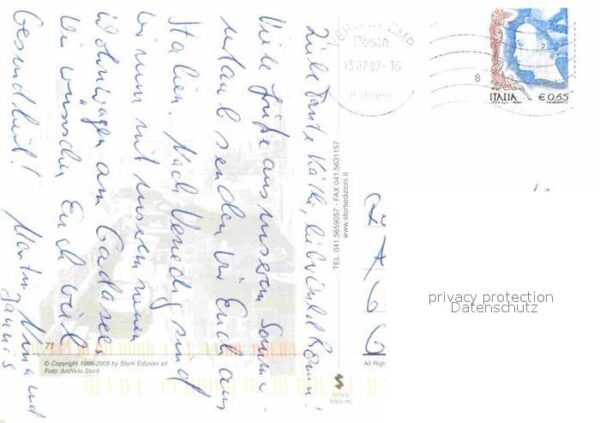 Liebe Tante Käthe, lieber Onkel
Viele Grüße aus unserem Sommer-
urlaub senden wir Euch aus
Italien. Nach Venedig sind
wir nun mit unserem neuen
Wohnwagen am Gardasee.
Wir wünschen Euch viel
Gesundheit!
Martin, und
Jannis
VERONA CMP
Poste
13.07.07-16
Italiane
8
ITALIA
€0,65
TEL. 041.5659057 - FAX 041.5631157
www.stortiedizioni.it
privacy protection
Datenschutz
71
© Copyright 1996-2005 by Storti Edizioni srl
Foto: Archivio Storti
All Rig